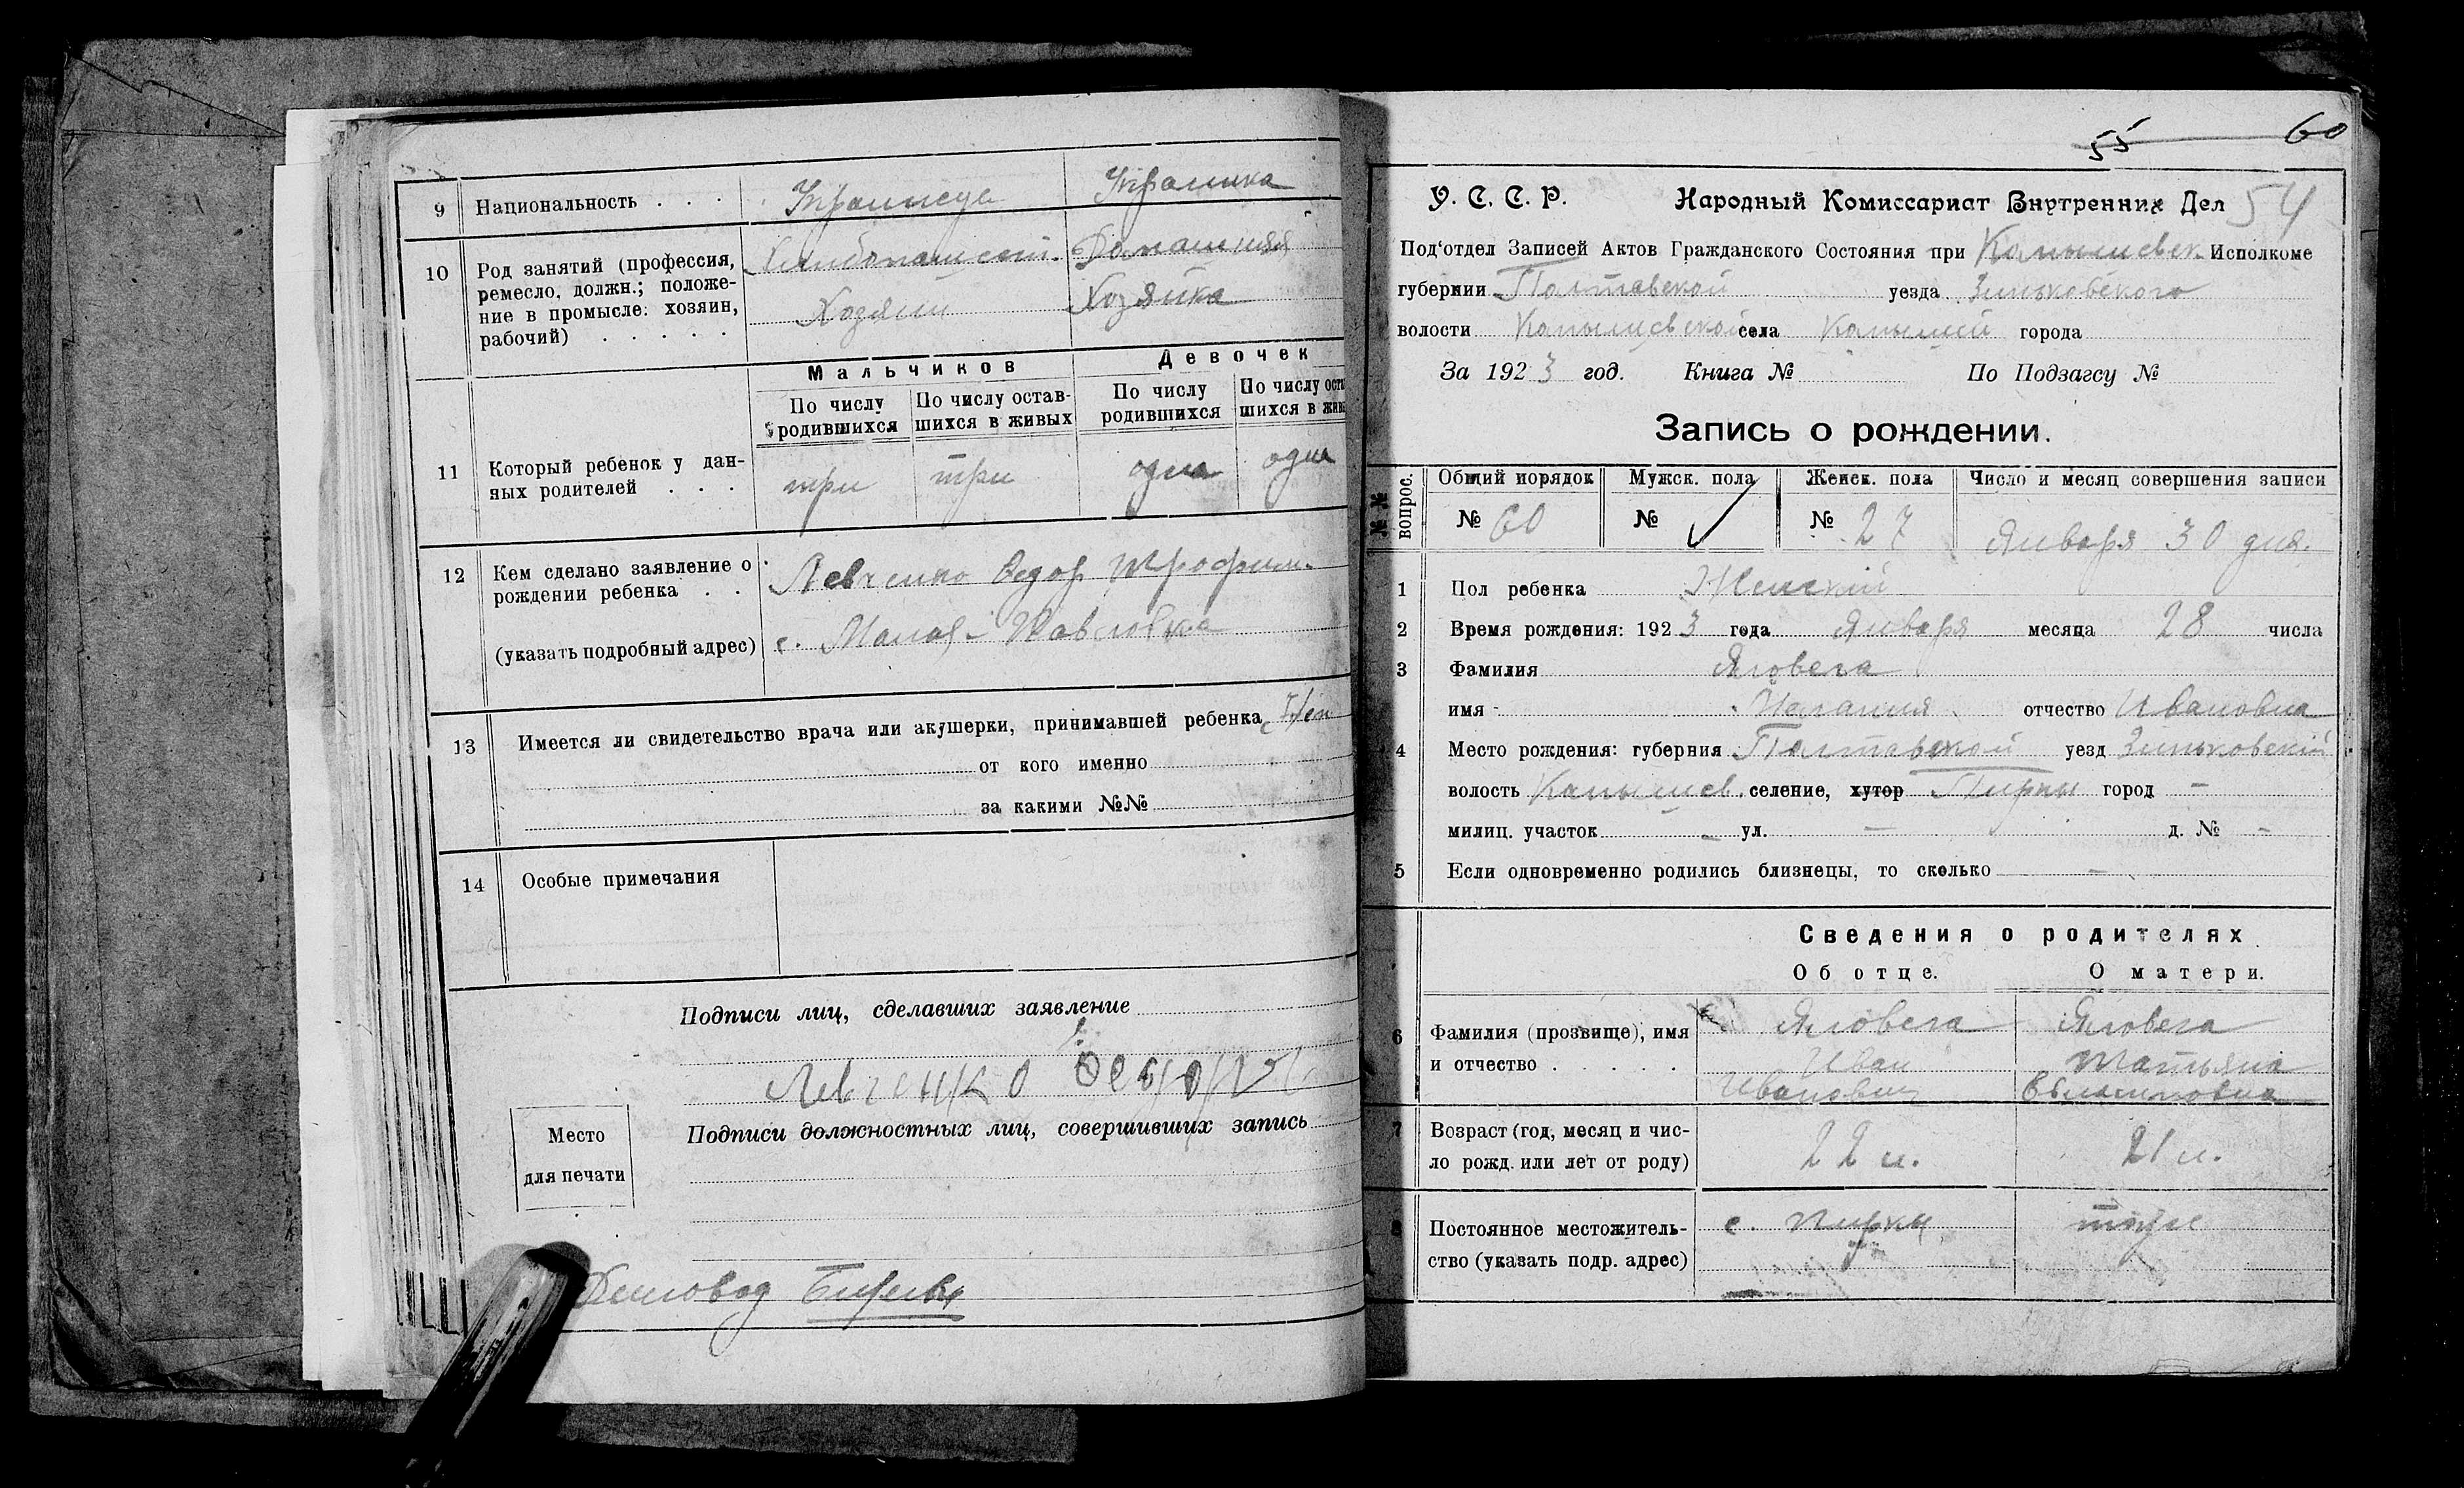 9 Национальность . . . Украинец Украинка
10 Род занятий (профессия, ремесло, должн.; положение в промысле: хозяин, рабочий) . . . . .
Хозяин
Домашняя
Хозяйка
Мальчиков
Девочек
По числу родившихся
По числу оставшихся в живых
По числу родившихся
По числу оста
шихся в жив
11 Который ребенок у дан-
ных родителей . . .
три три одна одна
12 Кем сделано заявление о
рождении ребенка . .
Левченко Федор Трофим.
(указать подробный адрес) с. Малая-Павловка
13 Имеется ли свидетельство врача или акушерки, принимавшей ребенка
от кого именно
за какими №№
14 Особые примечания
Подписи лиц, сделавших заявление
Левченко
Место
для печати
Подписи должностных лиц, совершивших запись
Деловод
55 60
У. С. С. Р. Народный Комиссариат Внутренних Дел 54
Под'отдел Записей Актов Гражданского Состояния при Исполкоме
губернии Полтавской уезда Зиньковского
волости села города
За 1923 год. Книга № По Подзагсу №
Запись о рождении.
№№ вопрос.
Общий порядок
Мужск. пола
Женск. пола
Число и месяц совершения записи
№ 60 № № 27 Января 30 дня.
1 Пол ребенка Женский
2 Время рождения: 1923 года Января месяца 28 числа
3 Фамилия Яловега
имя отчество Ивановна
4 Место рождения: губерния Полтавской уезд Зиньковский
волость селение, хутор Пирки город -
милиц. участок - ул. - д. № -
5 Если одновременно родились близнецы, то сколько -
Сведения о родителях
Об отце. О матери.
6 Фамилия (прозвище), имя
и отчество . . . . .
Яловега
Иван
Иванович
Яловега
Татьяна
7 Возраст (год, месяц и чис-
ло рожд. или лет от роду)
22 л. 21 л.
8 Постоянное местожитель-
ство (указать подр. адрес)
с. Пирки тоже